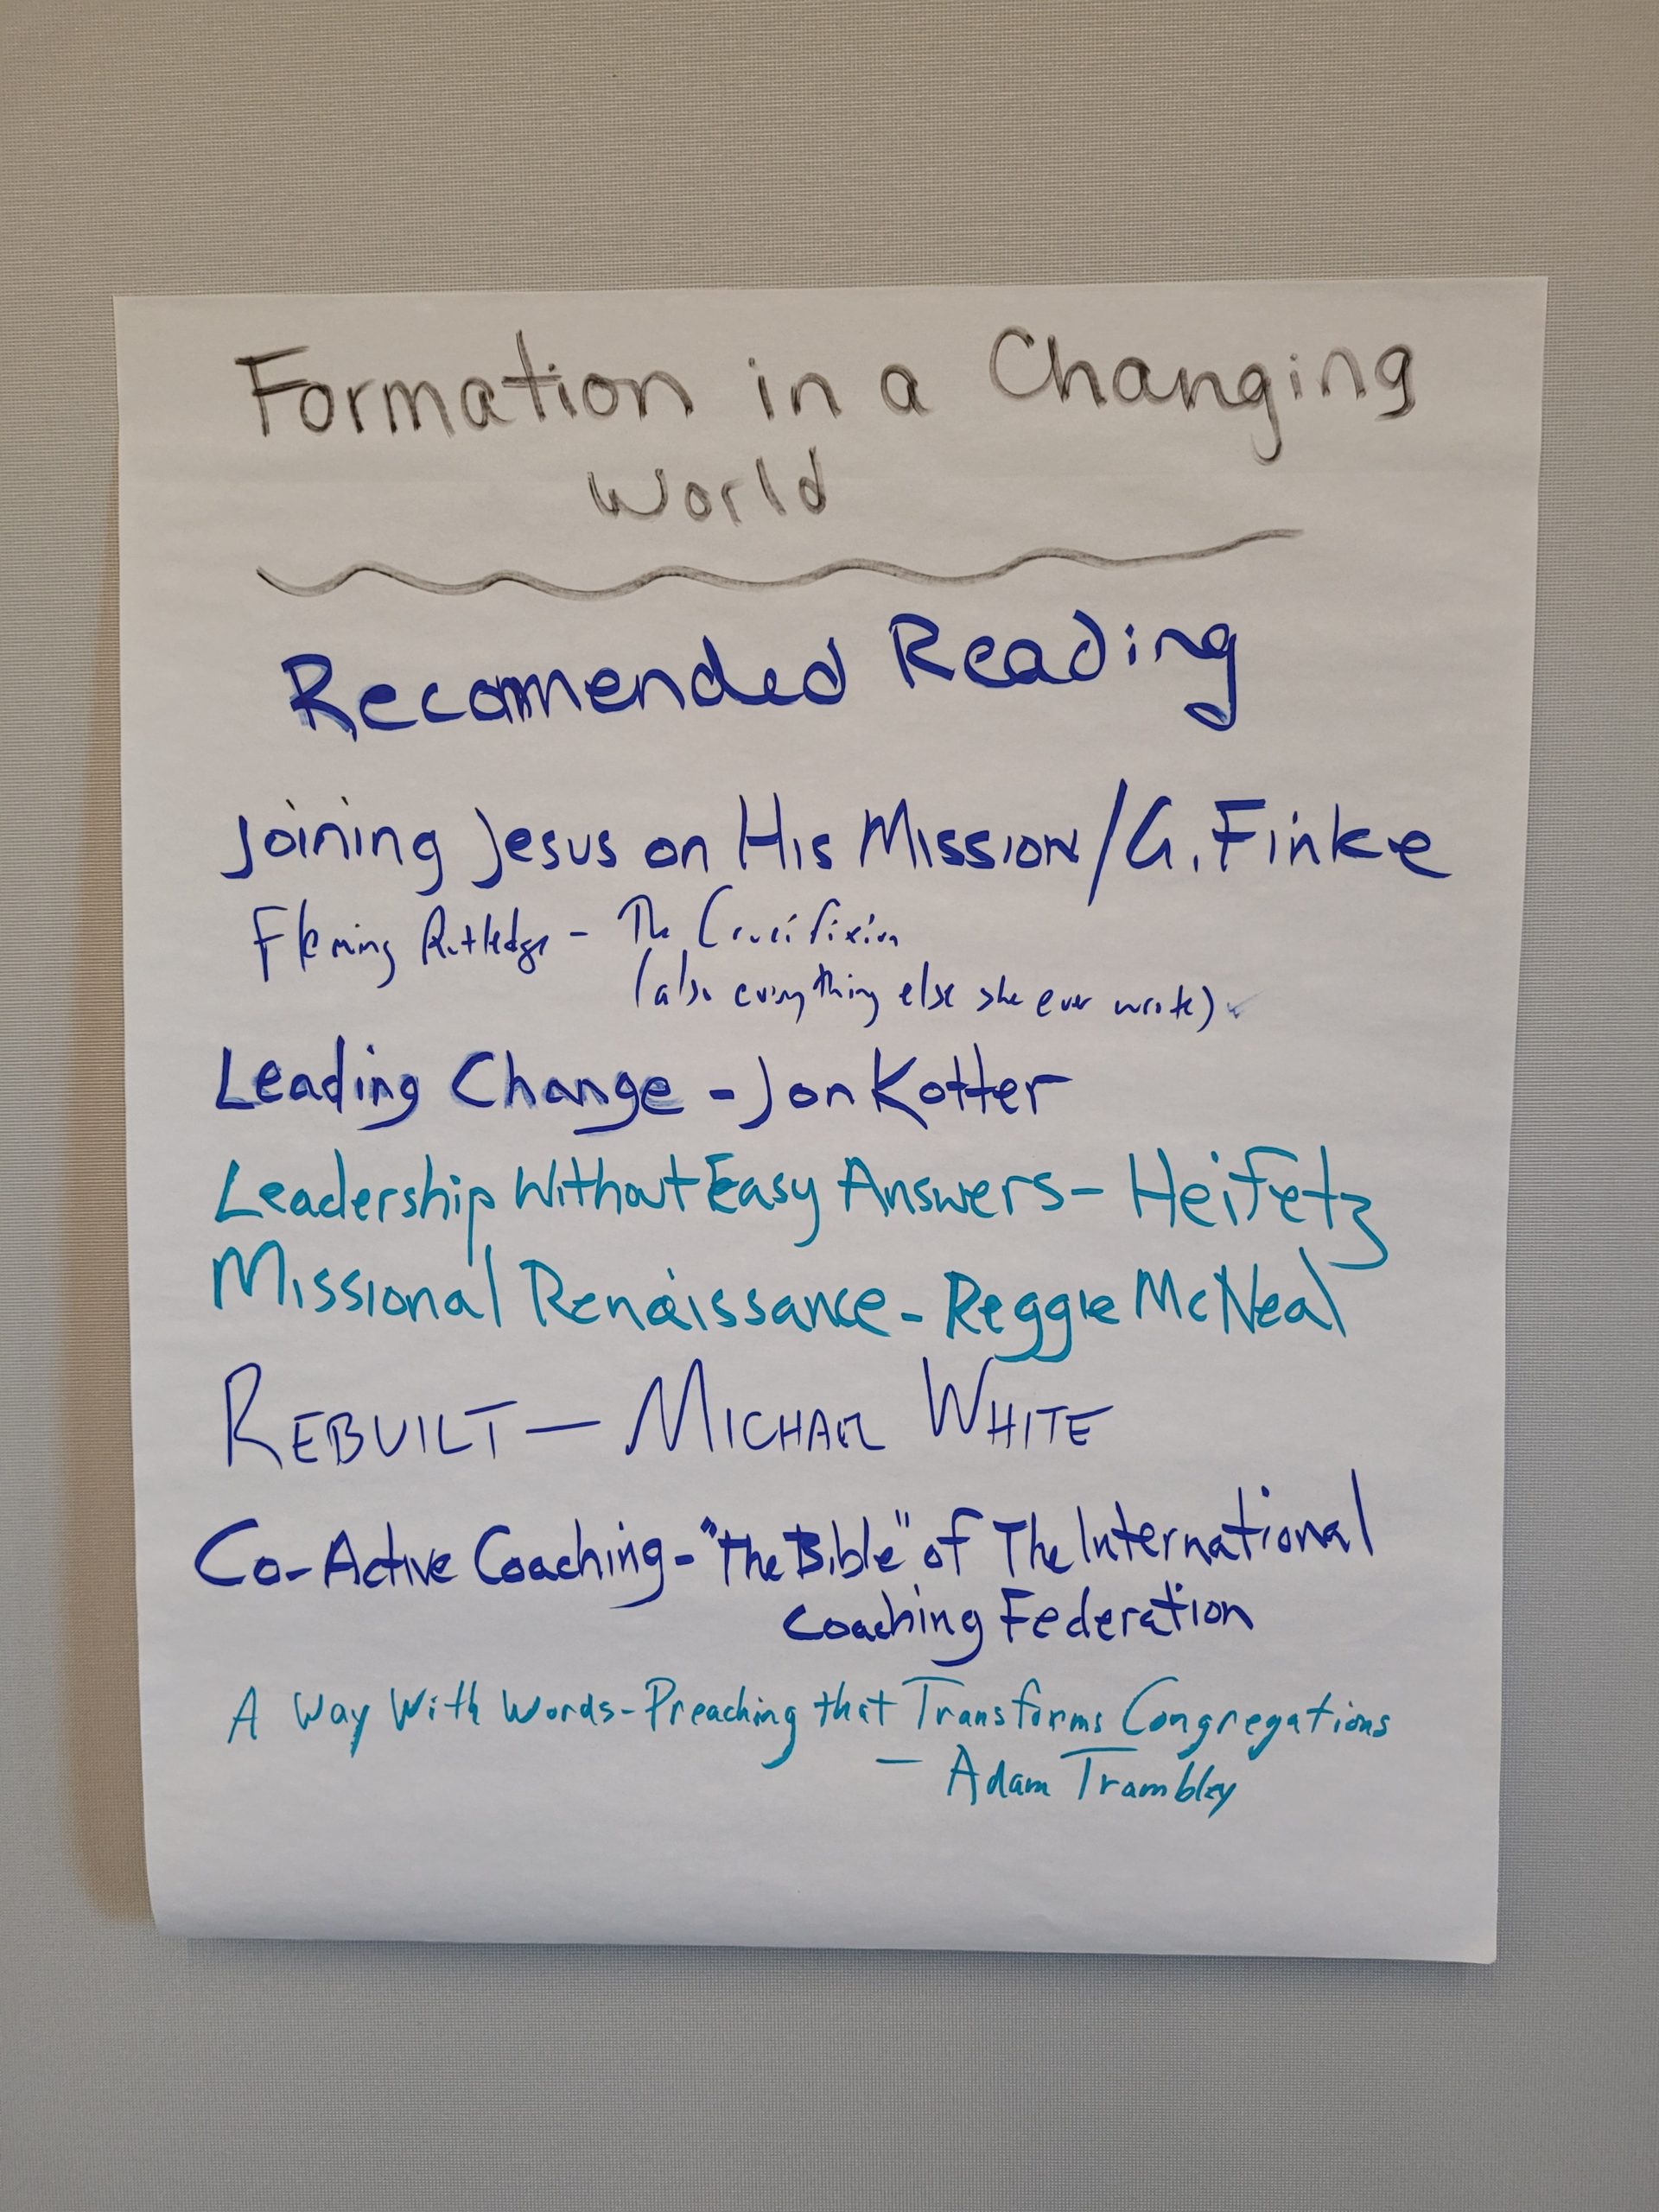 Formation in a Changing
World
Recommended Reading
Joining Jesus on His Mission/G. Finke
Fleming Rutledge - The Crucifixion
(also everything else she ever wrote)
Leading Change - Jon Kotter
Leadership Without Easy Answers - Heifetz
Missional Renaissance - Reggie McNeal
REBUILT — MICHAEL WHITE
Co-Active Coaching - "The Bible" of The International
Coaching Federation
A Way With Words - Preaching that Transforms Congregations
— Adam Trambley